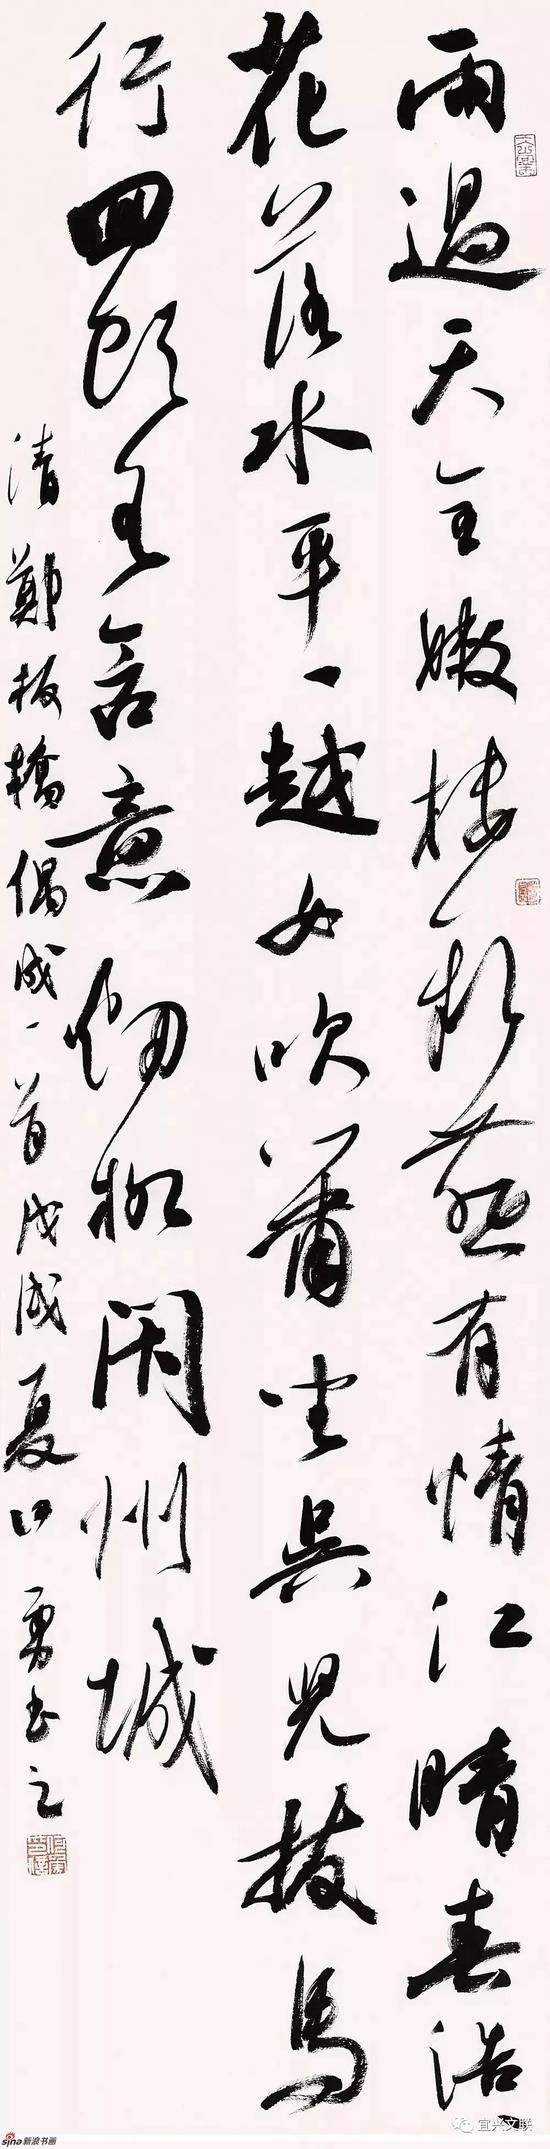 雨過天全嫩樓新燕有情江晴春浩〻
花落水平〻越女吹簫坐吳兒撥馬
行回頭各含意細柳州城
清鄭板橋偶成一首戊戌夏日勇書之
sina新浪书画
宜兴文联